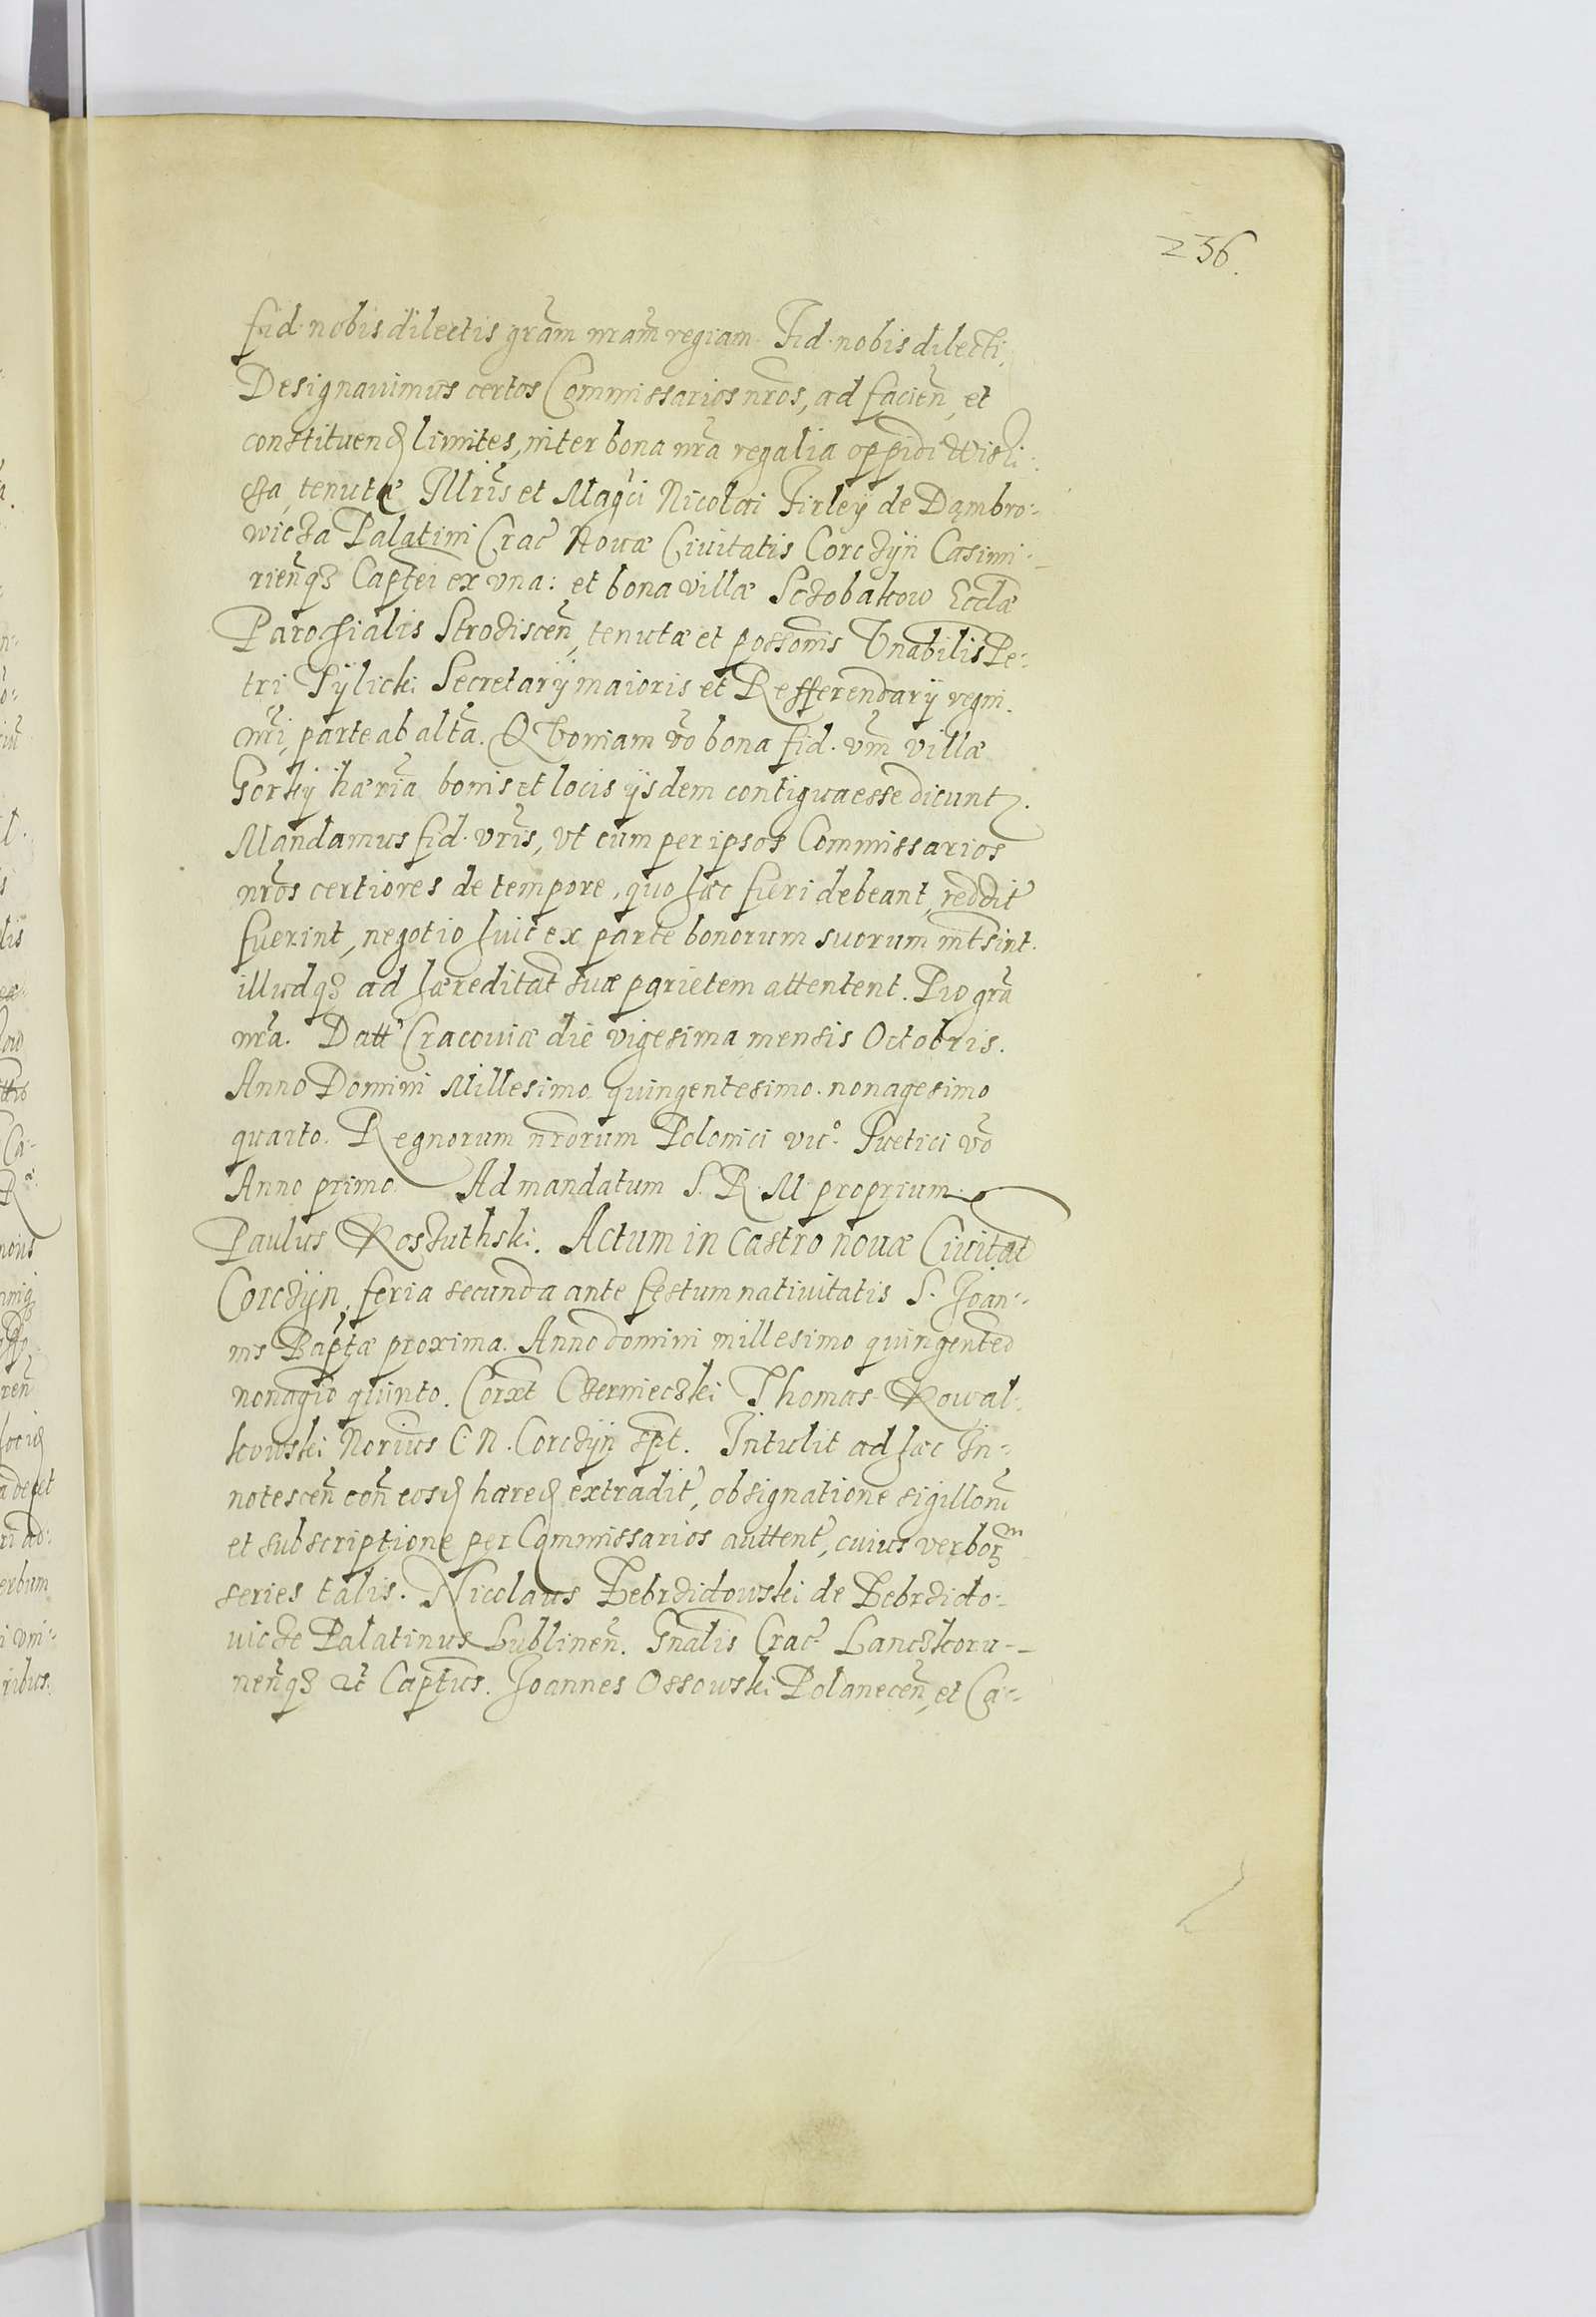 236.
fid. nobis dilectis grãm nrãm regiam. Fid. nobis dilecti,
Designauimus certos Commissarios nros, ad facien, et
constituend limites, inter bona nra regalia oppidi Wisli-
cza, tenutæ Illris et Magci Nicolai Firley de Dąmbro-
wicza Palatini Crac Nouæ Ciuitatis Corczÿn Casimi-
rienq3 Captei ex vna: et bona villæ Sczobakow Eccłæ
Parochialis Strodiscen, tenutæ et possonis Vnabilis Pe-
tri Tÿlicki Secretarÿ maioris et Refferendarÿ regni
nri, parte ab altã. Quoniam vo bona fid. vrm villæ
Gorkÿ hæria bonis et locis ÿsdem contigua esse dicunt.
Mandamus fid. vris, vt cum per ipsos Commissarios
nros certiores de tempore, quo hæc fieri debeant, reddit
fuerint, negotio huic ex parte bonorum suorum intsint.
illudq3 ad hæreditat suæ parietem attentent. Pro gra
nra. Datt Cracouiæ die vigesima mensis Octobris.
Anno Domini Millesimo quingentesimo. nonagesimo
quarto. Regnorum nrorum Polonici vii°. Suetici vo
Anno primo. Ad mandatum S. R. M proprium.
Paulus Koszuthski. Actum in Castro nouæ Ciuitat
Corczÿn, feria secunda ante festum natiuitatis S. Joan-
nis Baptæ proxima. Anno domini millesimo quingented
nonagio quinto. Corxt Czerniecski Thomas Kowal-
kowski Norius C. N. Corczÿn spt. Intulit ad hæc In-
notescen con eosd hæred extradit, obsignatione sigillorum
et subscriptione per Commissarios auttent, cuius verborum
series talis. Nicolaus Zebrzidowski de Zebrzido-
uicze Palatinus Lublinen. Gnalis Crac Lanczkoru-
nenq3 et Captus. Joannes Ossowski Polanecen, et Ca-